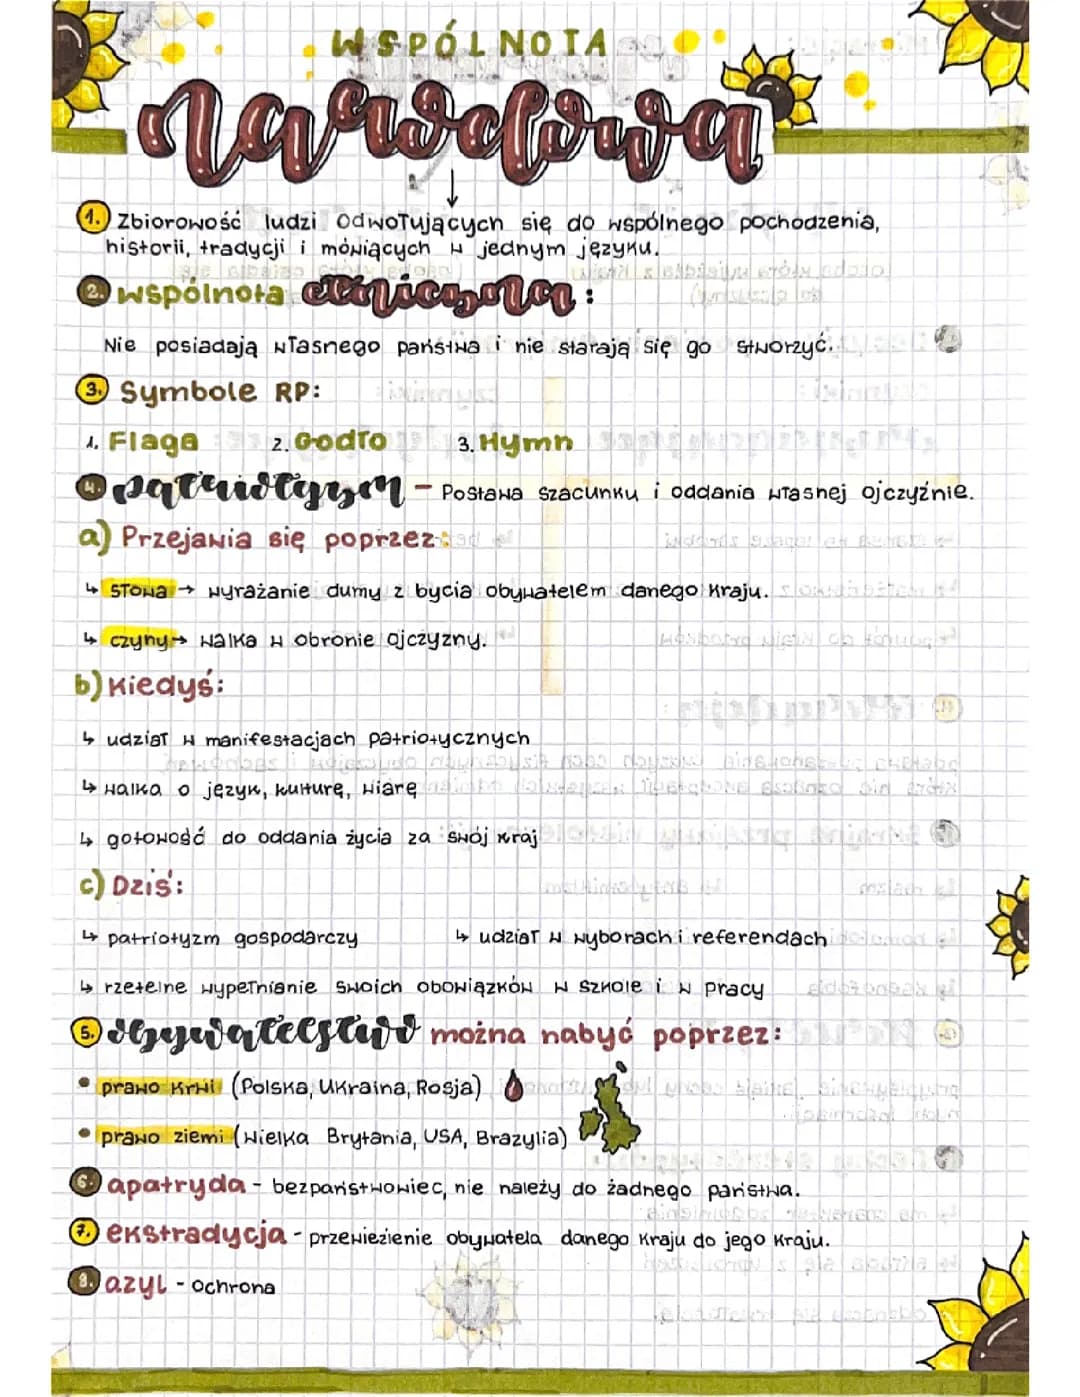 WSPÓLNOTA
narodowa
1. Zbiorowość ludzi odwołujących się do wspólnego pochodzenia,
historii, tradycji i mówiących w jednym języku.
2. wspólnota etniczna:
Nie posiadają własnego państwa i nie starają się go stworzyć.
3. Symbole RP:
1. Flaga 2. Godło 3. Hymn
4. patriotyzm - Postawa szacunku i oddania własnej ojczyźnie.
a) Przejawia się poprzez:
↳ słowa → wyrażanie dumy z bycia obywatelem danego kraju.
↳ czyny → walka w obronie ojczyzny.
b) Kiedyś:
↳ udział w manifestacjach patriotycznych
↳ walka o język, kulturę, wiarę
↳ gotowość do oddania życia za swój kraj
c) Dziś:
↳ patriotyzm gospodarczy ↳ udział w wyborach i referendach
↳ rzetelne wypełnianie swoich obowiązków w szkole i w pracy
5. obywatelstwo można nabyć poprzez:
• prawo krwi (Polska, Ukraina, Rosja)
• prawo ziemi (Wielka Brytania, USA, Brazylia)
6. apatryda - bezpaństwowiec, nie należy do żadnego państwa.
7. ekstradycja - przewiezienie obywatela danego kraju do jego kraju.
8. azyl - ochrona